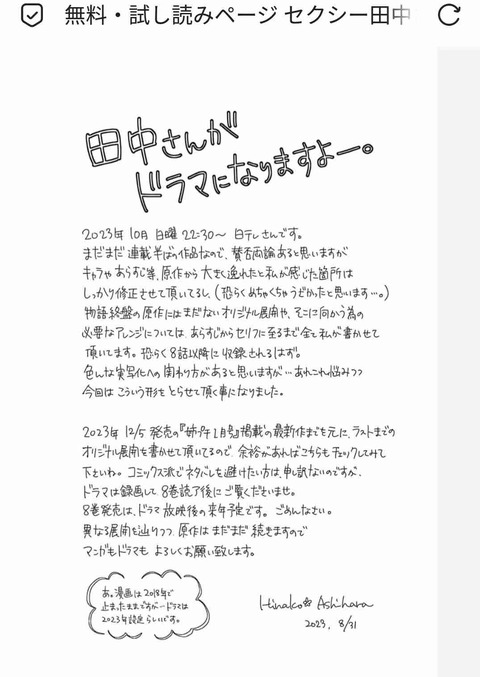 無料・試し読みページ セクシー田中
田中さんが
ドラマになりますよー。
2023年10月 日曜 22:30〜 日テレさんです。
まだまだ連載半ばの作品なので、賛否両論あると思いますが
キャラやあらすじ等、原作から大きく逸れたと私が感じた箇所は
しっかり修正させて頂いてるし、(恐らくめちゃくちゃうざかったと思います…。)
物語終盤の原作にはまだないオリジナル展開や、そこに向かう為の
必要なアレンジについては、あらすじからセリフに至るまで全て私が書かせて
頂いてます。恐らく8話以降に収録されるはず。
色んな実写化への関わり方があると思いますが…あれこれ悩みつつ
今回はこういう形をとらせて頂く事になりました。
2023年12/5発売の『姉プチ1月号』掲載の最新作までを元に、ラストまでの
オリジナル展開を書かせて頂いてるので、余裕があればこちらもチェックしてみて
下さいね。コミックス派でネタバレを避けたい方は、申し訳ないのですが、
ドラマは録画して、8巻読了後にご覧くださいませ。
8巻発売は、ドラマ放映後の来年予定です。ごめんなさい。
異なる展開を辿りつつ、原作はまだまだ続きますので
マンガもドラマもよろしくお願い致します。
あ。漫画は2018年で
止まったままですが…ドラマは
2023年設定らしいです。
Hinako Ashihara
2023. 8/31